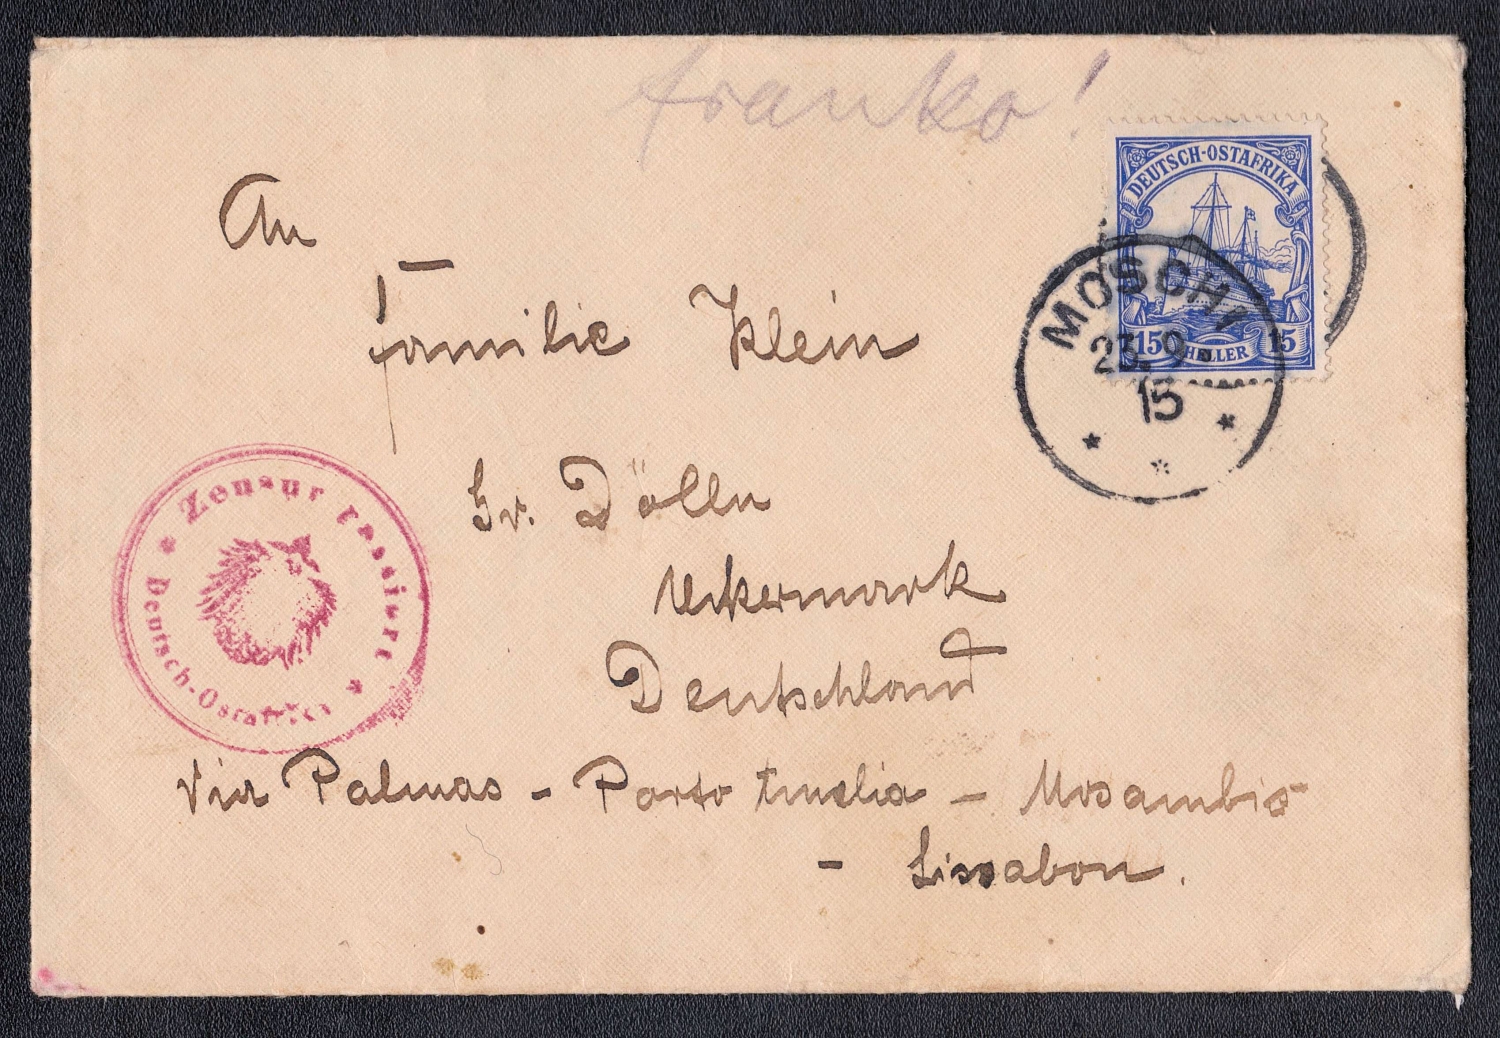 franko!
DEUTSCH-OSTAFRIKA
15 HELLER 15
MOSCHI
23.9.
15
An
Familie Klein
Gr. Dölln
Uckermark
Deutschland
Zensur passiert
Deutsch-Ostafrika
via Palmas - Porto Amelia - Mosambio
- Lissabon.